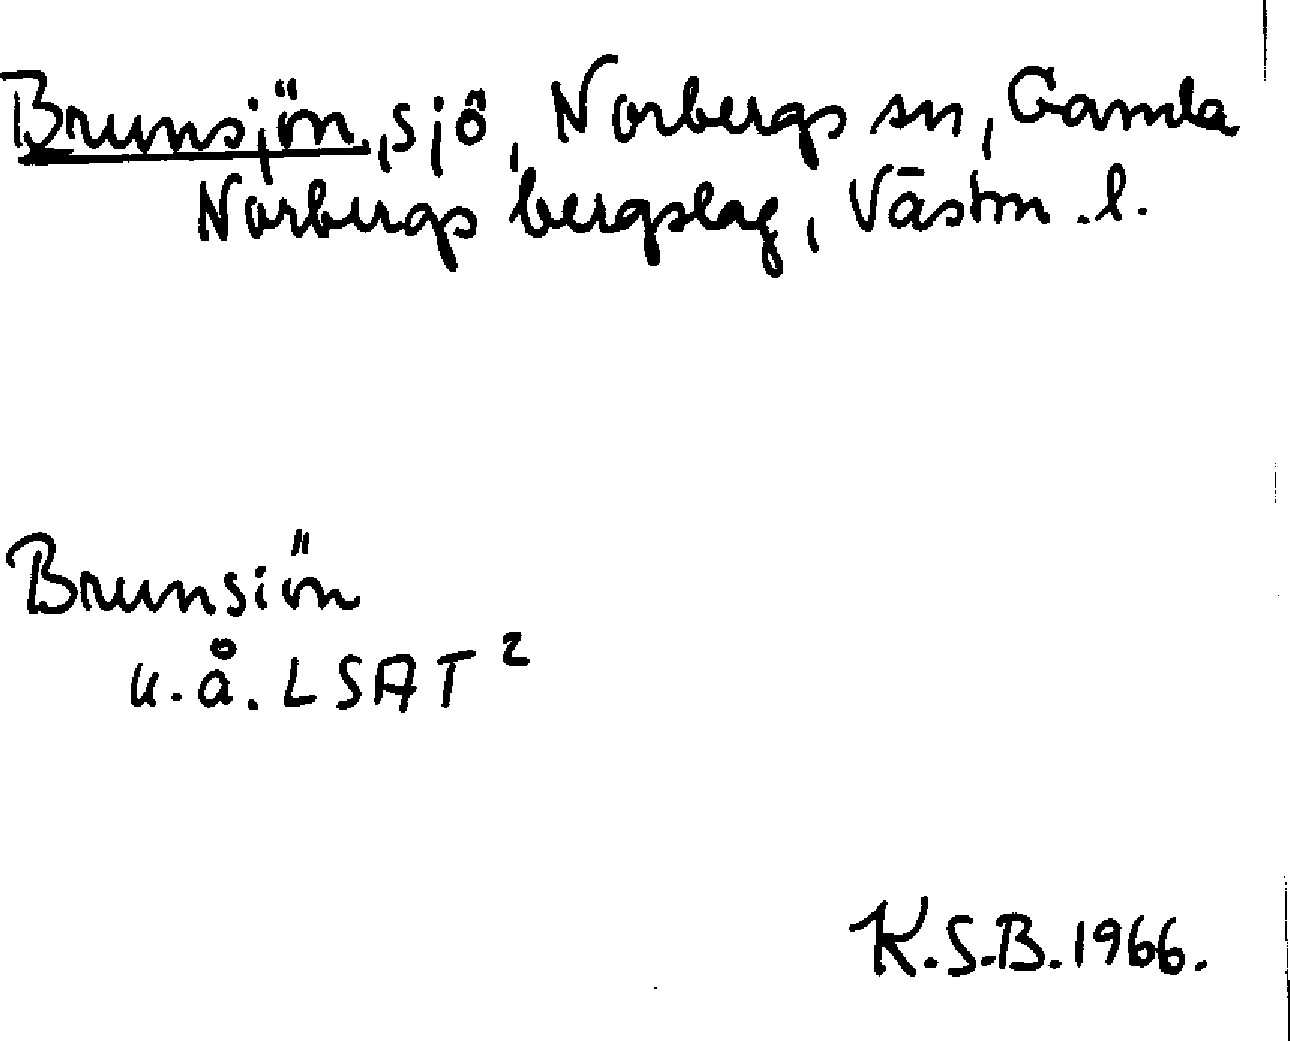 Brunsjön, sjö, Norbergs sn, Gamla
Norbergs bergslag, Västm. l.
Brunsiön
u.å. LSAT²
K.S.B. 1966.